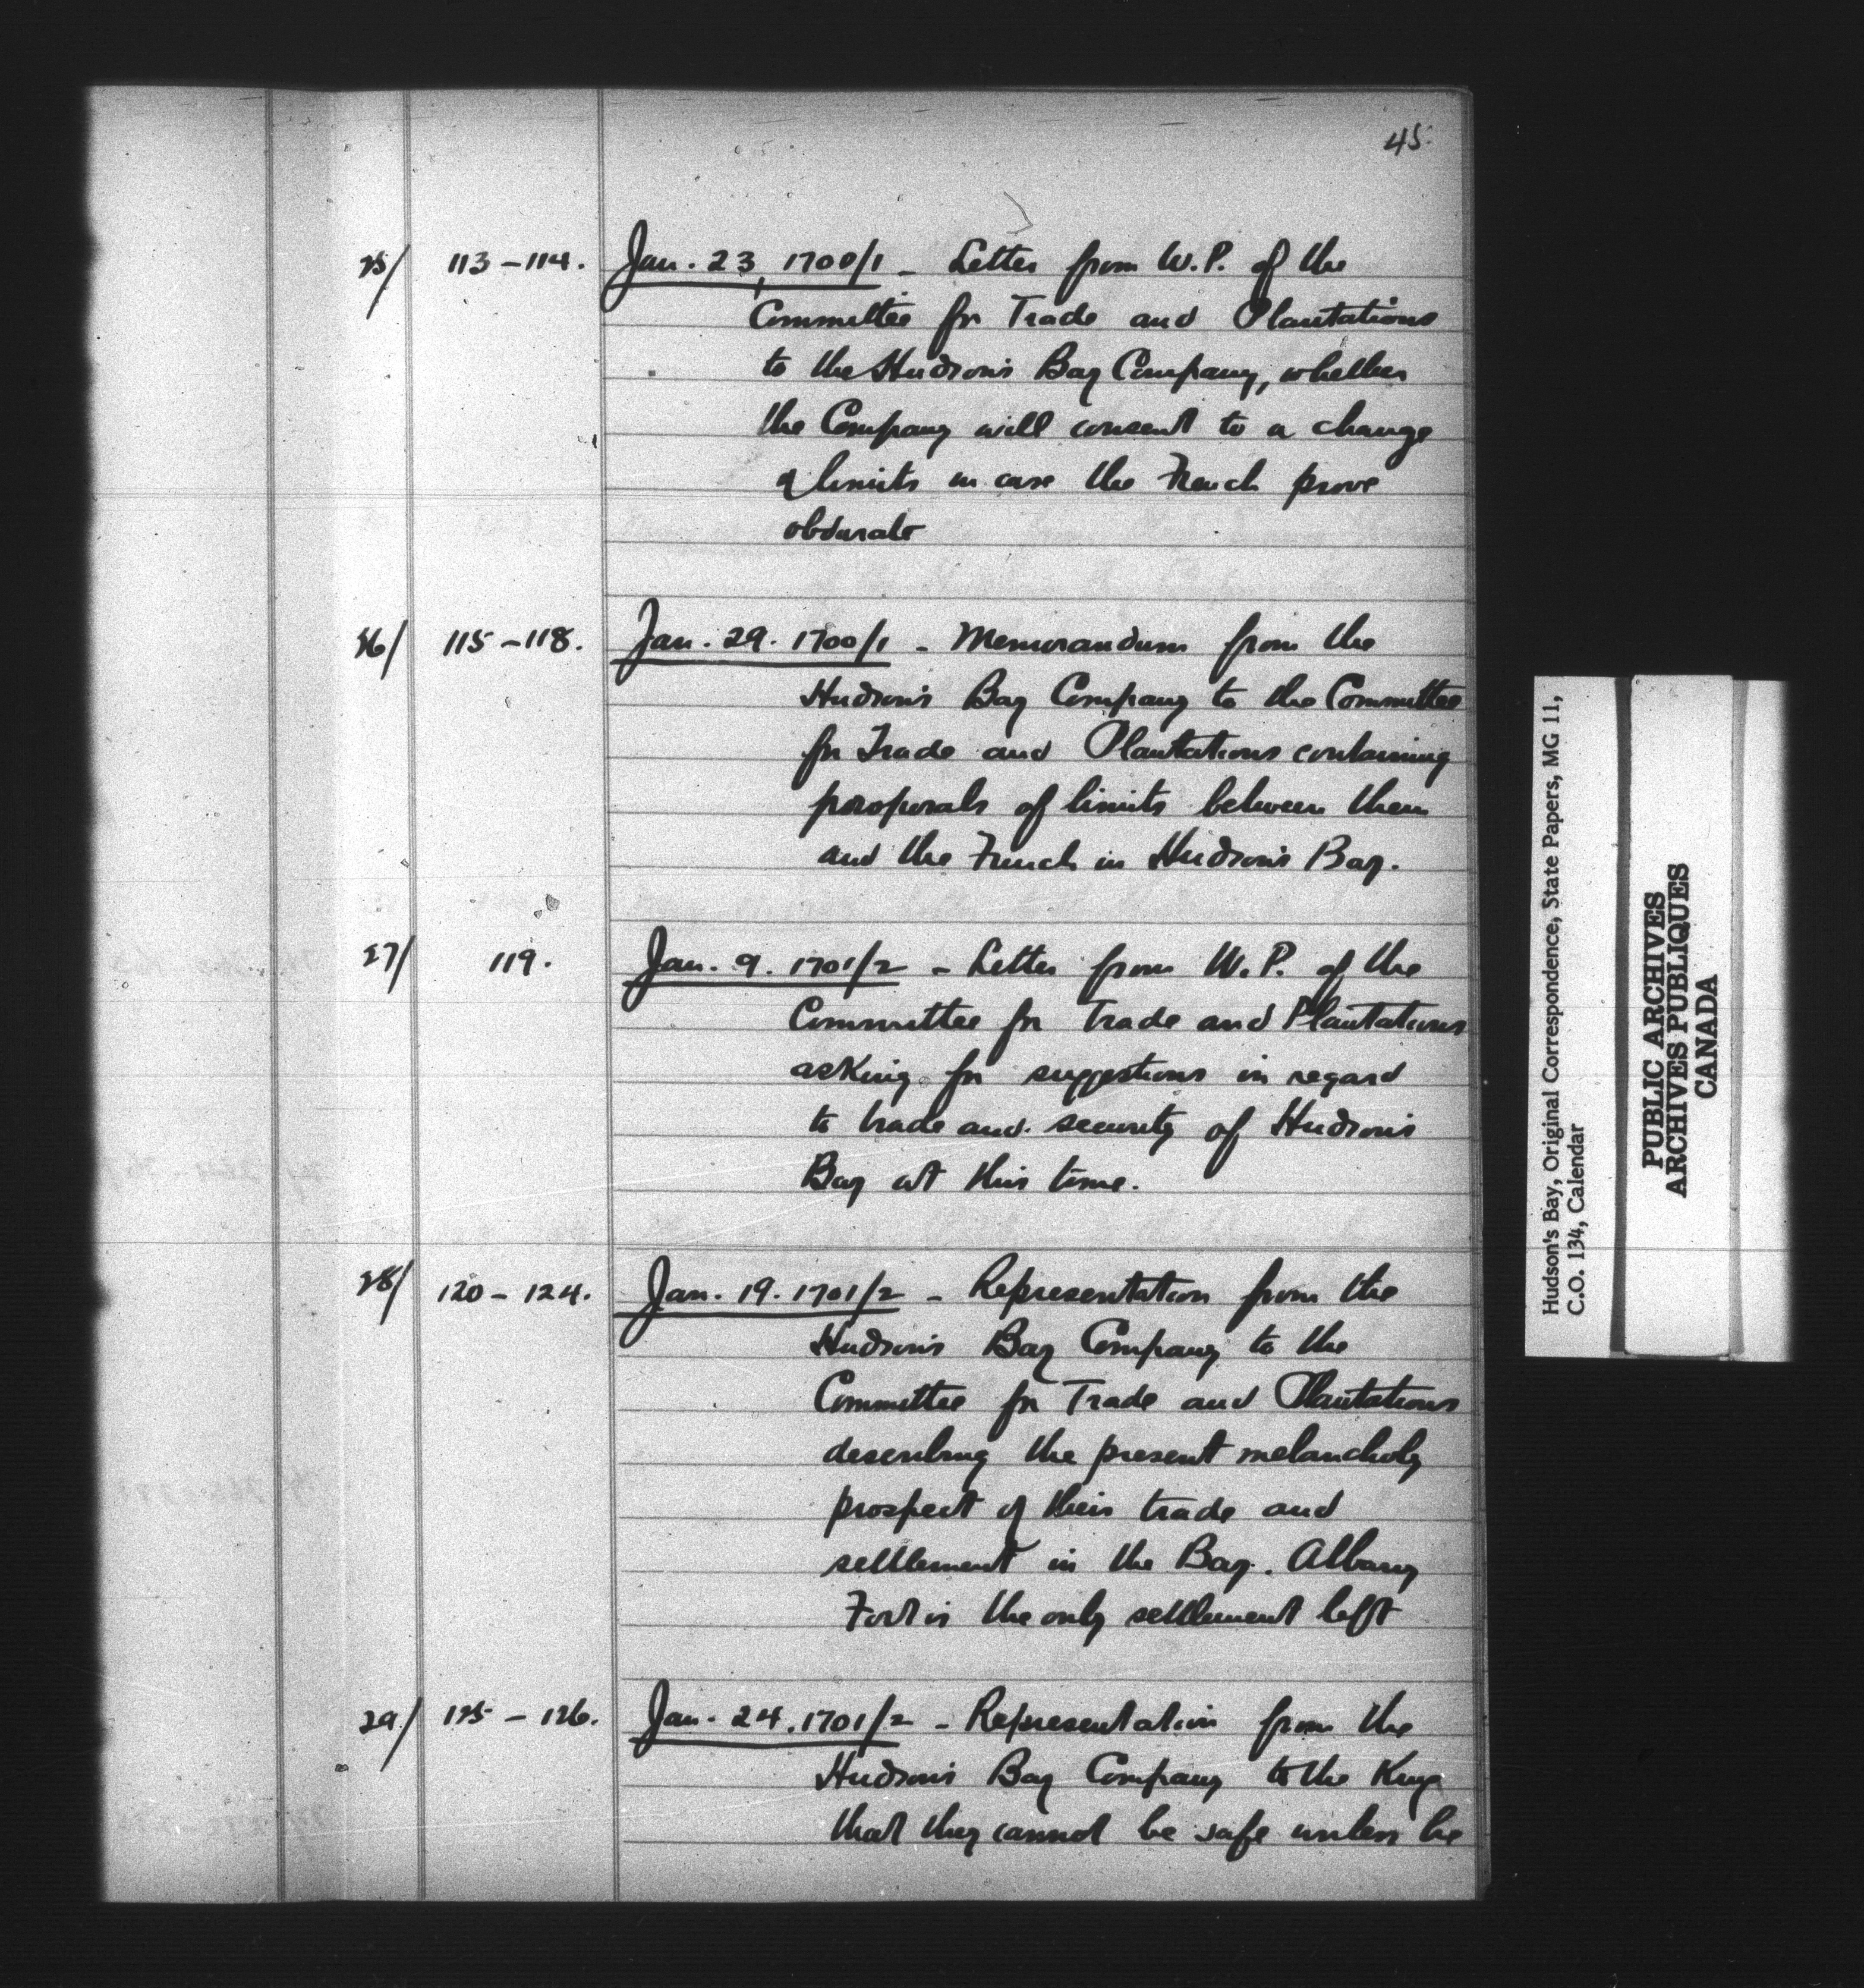 45.
25/ 113-114. Jan. 23, 1700/1 - Letter from W.P. of the
Committee for Trade and Plantations
to the Hudson's Bay Company, whether
the Company will consent to a change
of limits in case the French prove
obdurate
26/ 115-118. Jan. 29. 1700/1 - Memorandum from the
Hudson's Bay Company to the Committee
for Trade and Plantations containing
proposals of limits between them
and the French in Hudson's Bay.
27/ 119. Jan. 9. 1701/2 - Letter from W.P. of the
Committee for Trade and Plantations
asking for suggestions in regard
to trade and security of Hudson's
Bay at this time.
28/ 120-124. Jan. 19. 1701/2 - Representation from the
Hudson's Bay Company to the
Committee for Trade and Plantations
describing the present melancholy
prospect of their trade and
settlement in the Bay. Albany
Fort is the only settlement left
29/ 125-126. Jan. 24. 1701/2 - Representation from the
Hudson's Bay Company to the King
that they cannot be safe unless he
Hudson's Bay, Original Correspondence, State Papers, MG 11,
C.O. 134, Calendar
PUBLIC ARCHIVES
ARCHIVES PUBLIQUES
CANADA